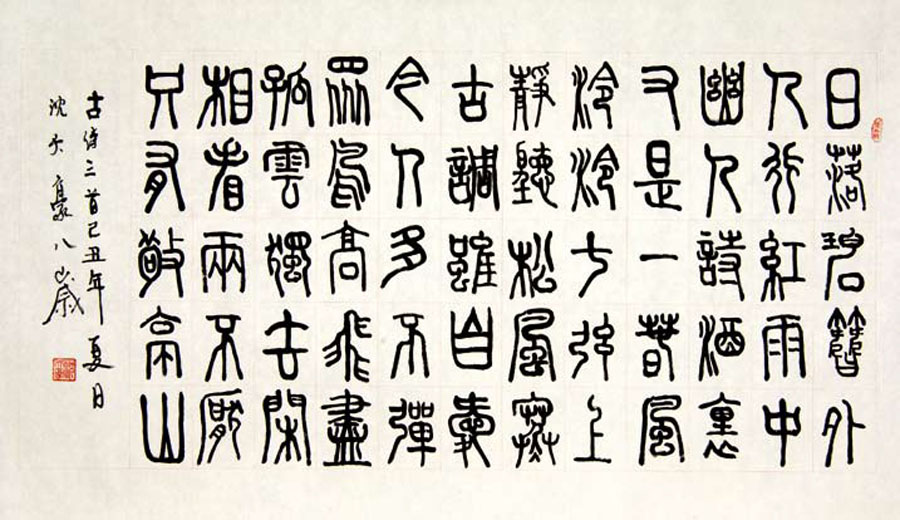 日落碧簪外
人行紅雨中
幽人詩酒裏
又是一春風
泠泠七弦上
靜聽松風寒
古調雖自愛
今人多不彈
眾鳥高飛盡
孤雲獨去閑
相看兩不厭
只有敬亭山
古詩三首己丑年夏日
沈豪八歲